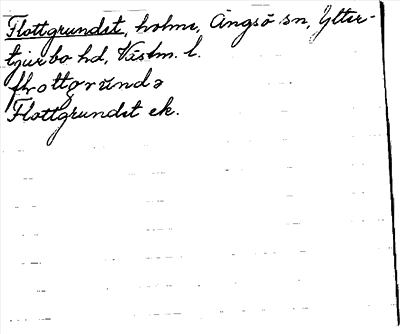 Flottgrundet, holme, Ängsö sn, Ytter-
tjurbo hd, Västm. l.
flottgrundə
Flottgrundet ek.